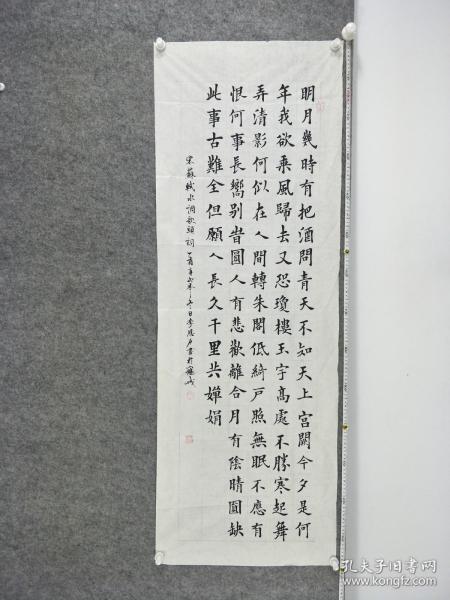 明月幾時有把酒問青天不知天上宮闕今夕是何
年我欲乘風歸去又恐瓊樓玉宇高處不勝寒起舞
弄清影何似在人間轉朱閣低綺戶照無眠不應有
恨何事長嚮別眥圓人有悲歡離合月有陰晴圓缺
此事古難全但願人長久千里共嬋娟
宋蘇軾水調歌頭詞
孔夫子旧书网